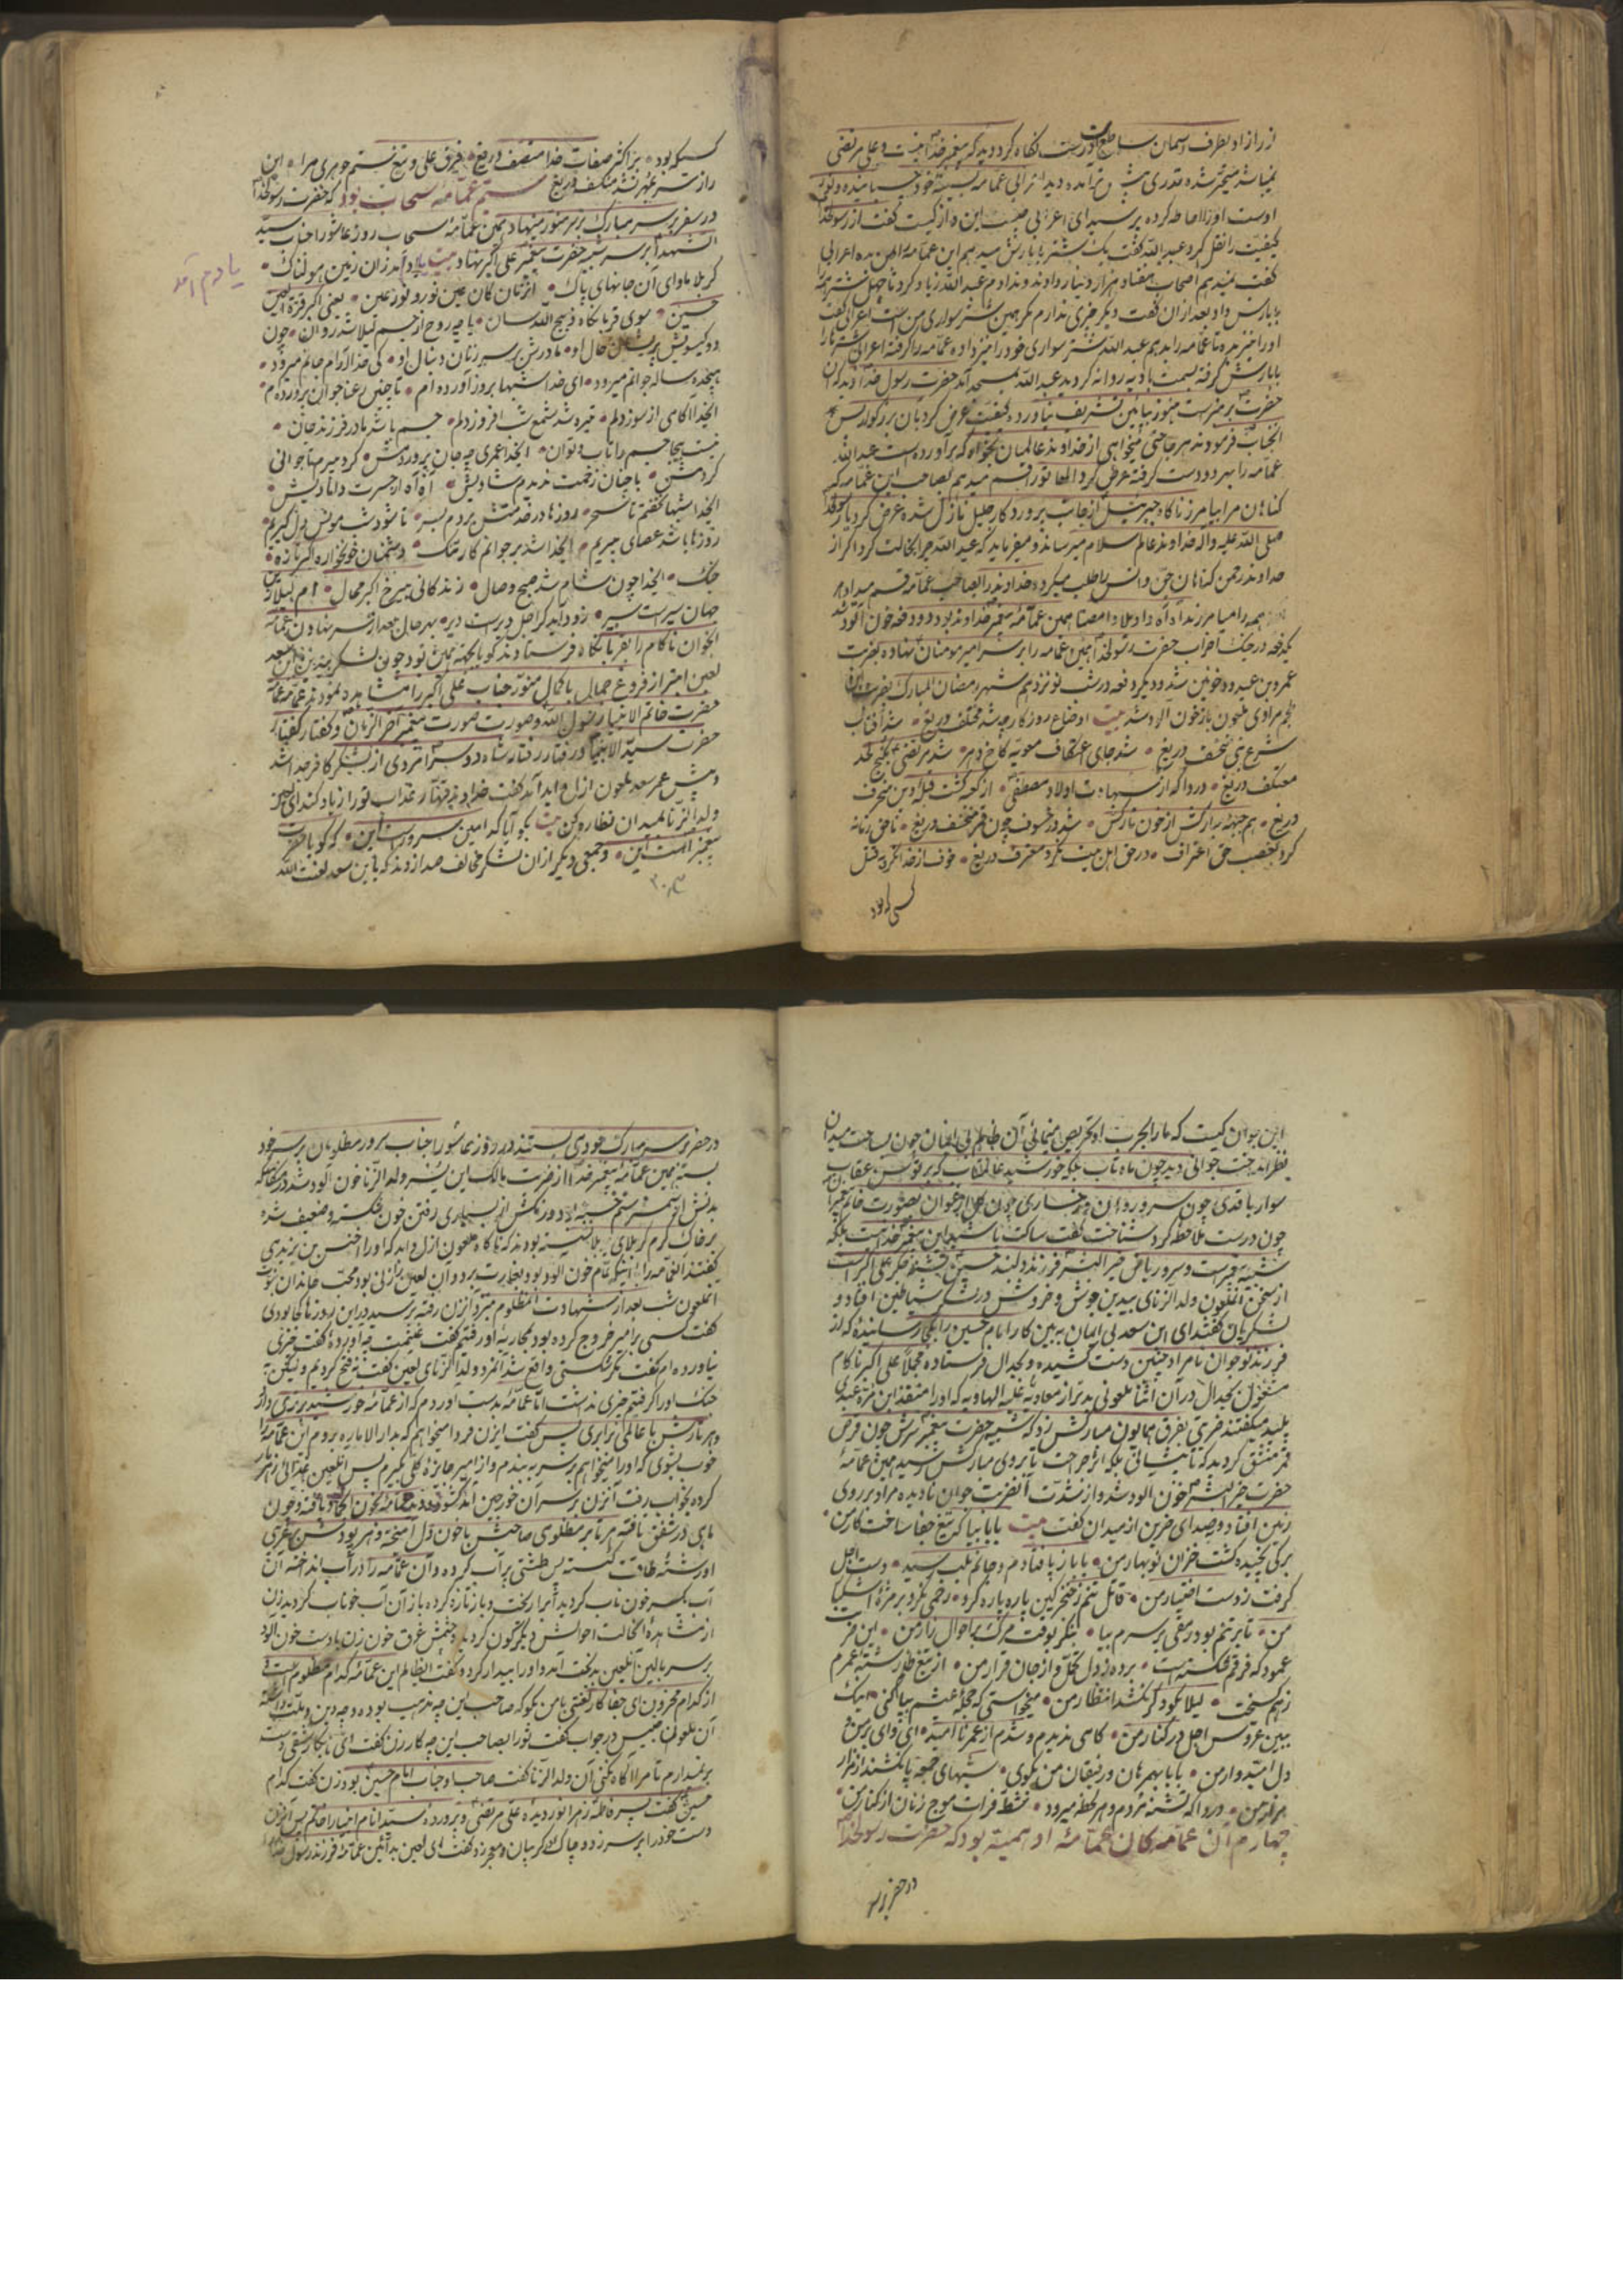 از راز او بطرف آسمان ساطع است نگاه کرد دید که پیغمبر خدا نیست و علی مرتضی
نمیباشد متحیر شده قدری پیش تر آمده دید اعرابی عمامه بسینه خود چسبانیده و نور
اوست او را احاطه کرده پرسید ای اعرابی چیست این و از کیست گفت از رسولخدا
کیفیت را نقل کرد عبدالله گفت یک شتر با بارش میدهم این عمامه را بمن بده اعرابی
گفت نمیدهم اصحاب هفتاد هزار دینار دادند ندادم عبدالله زیاد کرد تا چهل شتر همه
با بارش داد بعد از آن گفت دیگر چیزی ندارم مگر همین شتر سواری من است اعرابی گفت
او را نیز بده تا عمامه را بدهم عبدالله شتر سواری خود را نیز داده عمامه را گرفته اعرابی شتر را
با بارش گرفته بسمت بادیه روانه گردید عبدالله بمسجد آمد حضرت رسول خدا دید که آن
حضرت بر منبر است هنوز پایین تشریف نیاورده کیفیت عرض کرد بآن بزرگوار پس
آنجناب فرمودند هر حاجتی میخواهی از خداوند عالمیان بخواه که برآورده است عبدالله
عمامه را بسر دو دست گرفته عرض کرد الها تو را قسم میدهم بصاحب این عمامه که
گناهان مرا بیامرز ناگاه جبرئیل از جانب پروردگار جلیل نازل شده عرض کرد یا رسولخدا
صلی الله علیه واله خداوند عالم سلام میرساند و میفرماید که عبدالله چرا خجالت کرد اگر از
خداوند رحمن گناهان جن و انس را طلب میکرد و خداوند را بصاحب عمامه قسم میداد
همه را میامرزید آه آه واویلا وا مصیبتا همین عمامه پیغمبر خداوند بود دو دفعه خون آلود شد
یکدفعه در جنگ احزاب حضرت رسولخدا همین عمامه را بر سر امیر مومنان نهاده بضربت
عمرو بن عبدود خونین شد و دیگر دفعه در شب نوزدهم شهر رمضان المبارک بضربت ابن
ملجم مرادی ملعون باز خون آلود شد بیت اوضاع روزگار چه شد مختلف دریغ • شد آفتاب
شرع نبی منخسف دریغ • شد جای اعتکاف معویه کاخ دهر • شد مرتضی بکنج لحد
معتکف دریغ • دردا که از شهادت اولاد مصطفی • از کعبه گشت قبله دین منحرف
دریغ • هم جبهه مبارکش از خون نازکش • شد در خسوف چون قمر منخسف دریغ •
کرد تعصب حق اعتراف • در حق اهل بیت نکرد معترف دریغ • خوف از خدا نکرد به قتل
کسی که بود
کسیکه بود • بر اکثر صفات خدا متصف دریغ • فرق علی و تیغ ستم جوهری مرا • این
راز سر بمهر نشد منکشف دریغ سیّم عمامه سحاب بود که حضرت رسولخدا
در سفر بر سر مبارک بر سر منور مینهاد همین عمامه سحاب روز عاشورا جناب سید
الشهدا بر سر شبیه حضرت پیغمبر علی اکبر نهاد بیت یادم آمد زان زمین هولناک •
یادم آمد
کربلا ماوای آن جانهای پاک • آن زمان کان عین نور و نور عین • یعنی اکبر قرة العین
حسین • سوی قربانگاه ذبیح الله سان • یا چه روح از جسم لیلا شد روان • چون
دو گیسویش پریشان حال او • مادرش بر سر زنان دنبال او • کی خدا آرام جانم میرود •
هیجده ساله جوانم میرود • ای خدا شبها بروز آورده ام • تا چنین رعنا جوان پرورده ام •
ایخدا آگاهی از سوز دلم • تیره شد شمع شب افروز دلم • جسم باشد مادر فرزند جان •
نیست بیجا جسم را تاب و توان • ایخدا عمری چه جان پروردمش • گرد میر مهتا جوانی
کردمش • با چنان زحمت ندیدم شادیش • آه آه از حسرت دامادیش •
ایخدا شبها نخفتم تا سحر • روزها در خدمتش بردم بسر • تا شود شب مونس دل گیریم •
روزها باشد عصای پیریم • ایخدا شد بر جوانم کار تنگ • دشمنان خونخواره اکبر تازه
جنگ • ایخدا چون شام شد صبح وصال • زندگانی بی رخ اکبر محال • ام لیلا از
جهان سیر است سیر • زود اید گر اجل دیر است دیر • بهر حال بعد از سر نهادن عمامه
آنجوان ناکام را بقربانگاه فرستادند گویا بجهة همین بود چون لشکر بیدین ابن سعد
لعین ابتر از فروغ جمال باکمال منور جناب علی اکبر را مشاهده نمودند عمامه عمامه
حضرت خاتم الانبیا رسول الله و صورت صورت پیغمبر آخر الزمان و گفتار گفتار
حضرت سید الانبیا و رفتار رفتار شاه دو سرا مردی از لشکر کافر جدا شد
و پیش عمر سعد ملعون ازل و ابد آمد گفت خداوند قهار عذاب تو را زیاد کند ای لعین
ولد الزنا بمیدان نظاره کن بیت بگو آیا که امین سرور است این • که گویا حضرت
پیغمبر است این • و جمعی دیگر از آن لشکر مخالف صدا زدند که یا ابن سعد لعنت الله
این جوان کیست که ما را بحرب او تحریص مینمائی آن ظالم بی ایمان چون بساحت میدان
نظر انداخت جوانی دید چون ماه تاب بلکه خورشید عالمتاب که بر توسن عقاب
سوار با قدی چون سرو روان و رخساری چون گل ارغوان بصورت خاتم پیغمبران
چون درست ملاحظه کرد شناخت گفت ساکت باشید این پیغمبر خدا نیست بلکه
شبیه پیغمبر است و سرور ریاض خیر البشر فرزند دلبند حسین تشنه جگر علی اکبر است
از سخن آنملعون ولد الزنای بیدین جوش و خروش در لشکر شیاطین افتاد و
لشکریان گفتند ای ابن سعد بی ایمان به بین کار امام حسین را بکجا رسانیده که از
فرزند نوجوان نامراد چنین دست کشیده و بجدال فرستاده مجملا علی اکبر ناکام
مشغول بجدال در آن اثنا ملعونی بدتر از معاویه علیه الهاویه که او را منقذ ابن مره عبدی
پلید میگفتند ضربتی بفرق همایون مبارکش زد که شبیه حضرت پیغمبر سرش چون قرص
قمر منشق گردید که تا پیشانی بلکه اثر جراحت تا بروی مبارکش رسید همین عمامه
حضرت خیر البشر خون آلود شد و از شدت آنضربت جوان نادیده مراد بر روی
زمین افتاد و صدای حزین از میدان گفت بیت بابا بیا که تیغ جفا ساخت کار من •
برگی نچیده گشت خزان نوبهار من • بابا ز پا فتادم و جانم بلب رسید • دست اجل
گرفت ز دست اختیار من • قاتل تنم ز خنجر کین پاره پاره کرد • رحمی نکرد بر مژه اشکبار
من • تا بر تنم بود رمقی بر سرم بیا • بنگر بوقت مرگ بر احوال زار من • این ضربت
عمود که فرقم شکسته است • برده ز دل تحمل و از جان قرار من • از تیغ ظلم رشته عمرم
ز هم گسیخت • لیلا بگو دگر نکشد انتظار من • میخواستی که حجله عیشم بپا کنی • اینک
ببین عروس اجل در کنار من • کامی ندیدم و شدم از عمر ناامید • ای وای بر من و
دل امیدوار من • بابا بهمرهان و رفیقان من بگوی • شبهای جمعه پا نکشند از مزار
من • دردا که تشنه مردم و هر لحظه میرود • شط فرات موج زنان از کنار من •
چهارم آن عمامه کان عمامه او همینه بود که حضرت رسولخدا
در حضر بر سر
در حضر بر سر مبارک خود می بستند در روز عاشورا جناب سرور مظلومان بر سر خود
بسته همین عمامه پیغمبر خدا از ضربت مالک ابن یسر ولد الزنا خون آلود شد در هنگامیکه
بدنش از سم ستم خسته و دور نگش از بسیاری رفتن خون شکسته و ضعیف شده
بر خاک گرم کربلای پر بلا نشسته بودند که ناگاه ملعون ازل و ابد که او را اخنس بن یزید می
گفتند آنعمامه را با اینکه تمام خون آلود بود بغارت برد و آن لعین را زنی بود محب خاندان نبوت
آنملعون شب بعد از شهادت آنمظلوم بنزد آنزن رفته پرسید در این روزها کجا بودی
گفت کسی بر امیر خروج کرده بود بمحاربه او رفتیم گفت غنیمت چه آوردی گفت چیزی
نیاورده ام گفت مگر شکستی واقع شد آنمرد ولد الزنای لعین گفت نه فتح کردیم ولیکن به
جنگ او را گرفتیم چیزی نداشت اما عمامه بدست آوردم که از عمامه خورشید برتری دارد
و هر تارش با عالمی برابری پس گفت ایزن فردا میخواهم که بدار الاماره بروم این عمامه را
خوب بشوی که او را میخواهم بر سر به بندم و از امیر جایزه کلی بگیرم پس آنلعین غذای زهرمار
کرده بخواب رفت آنزن بر سر آن خورجین آمد گشود دید عمامه بخون آلوده یافته و چون
ماهی در شفق تافته هر تار بر مظلومی صاحبش با خون دل آمیخته و هر پودش بر غریبی
او رشته طاقت گسسته پس طشتی پر آب کرده و آن عمامه را در آب انداخته آن
آب یکسر خون ناب گردید آنرا ریخت و باز تازه کرده باز آن آب خوناب گردید زن
از مشاهده اینحالت احوالش دیگرگون گردید و چشمش غرق خون زن با دست خون آلود
بر سر بالین آنلعین بدبخت آمد و او را بیدار کرده گفت ایظالم این عمامه کدام مظلوم است و
از کدام محزون ای جفا کار گفتی با من بگو که صاحب این چه مذهب بوده و چه دین و ملت داشته
آن ملعون خبیث در جواب گفت تو را بصاحب این چه کار زن گفت ای نابکار شقی دست
بر نمیدارم تا مرا آگاه نکنی آن ولد الزنا گفت صاحب او جناب امام حسین بود زن گفت کدام
حسین گفت پسر فاطمه زهرا نور دیده علی مرتضی و پرورده سید انام
دست خود را بر سر زد و چاک گریبان و معجر زد گفت ای لعین بدآئین عمامه فرزند رسول